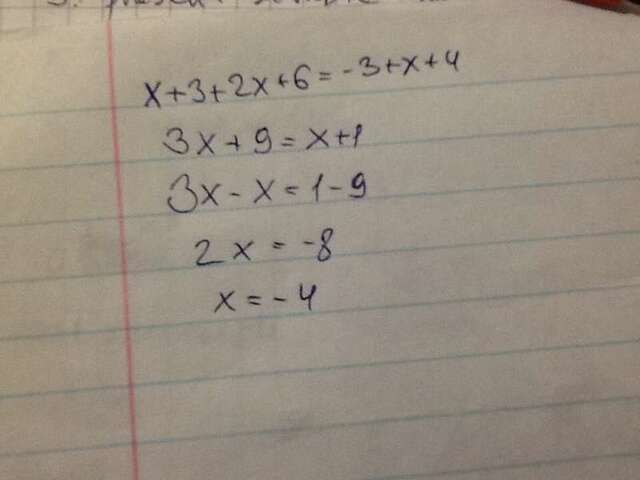 x+3+2x+6=-3+x+4
3x+9=x+1
3x-x=1-9
2x=-8
x=-4